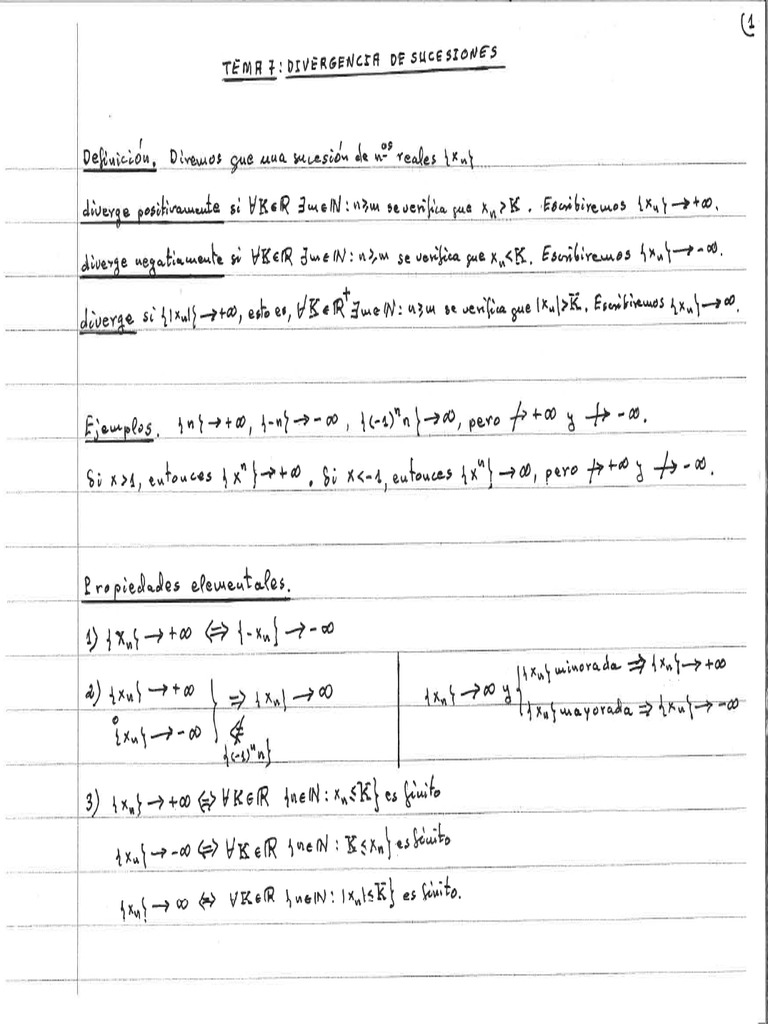 (1
TEMA 7: DIVERGENCIA DE SUCESIONES
Definición. Diremos que una sucesión de nos reales {xn}
diverge positivamente si ∀K∈ℝ ∃m∈ℕ: n≥m se verifica que xn>K. Escribiremos {xn}→+∞.
diverge negatiamente si ∀K∈ℝ ∃m∈ℕ: n≥m se verifica que xn<K. Escribiremos {xn}→-∞.
diverge si {|xn|}→+∞, esto es, ∀K∈ℝ⁺ ∃m∈ℕ: n≥m se verifica que |xn|>K. Escribiremos {xn}→∞.
Ejemplos. {n}→+∞, {-n}→-∞, {(-1)ⁿn}→∞, pero ↛+∞ y ↛-∞.
Si x>1, entonces {xⁿ}→+∞. Si x<-1, entonces {xⁿ}→∞, pero ↛+∞ y ↛-∞.
Propiedades elementales.
1) {xn}→+∞ ⇔ {-xn}→-∞
2) {xn}→+∞
ó
{xn}→-∞ } ⇒ {xn}→∞
⇍
{(-1)ⁿn}
{xn}→∞ y { {xn} minorada ⇒ {xn}→+∞
{xn} mayorada ⇒ {xn}→-∞
3) {xn}→+∞ ⇔ ∀K∈ℝ {n∈ℕ: xn≤K} es finito
{xn}→-∞ ⇔ ∀K∈ℝ {n∈ℕ: K≤xn} es finito
{xn}→∞ ⇔ ∀K∈ℝ {n∈ℕ: |xn|≤K} es finito.